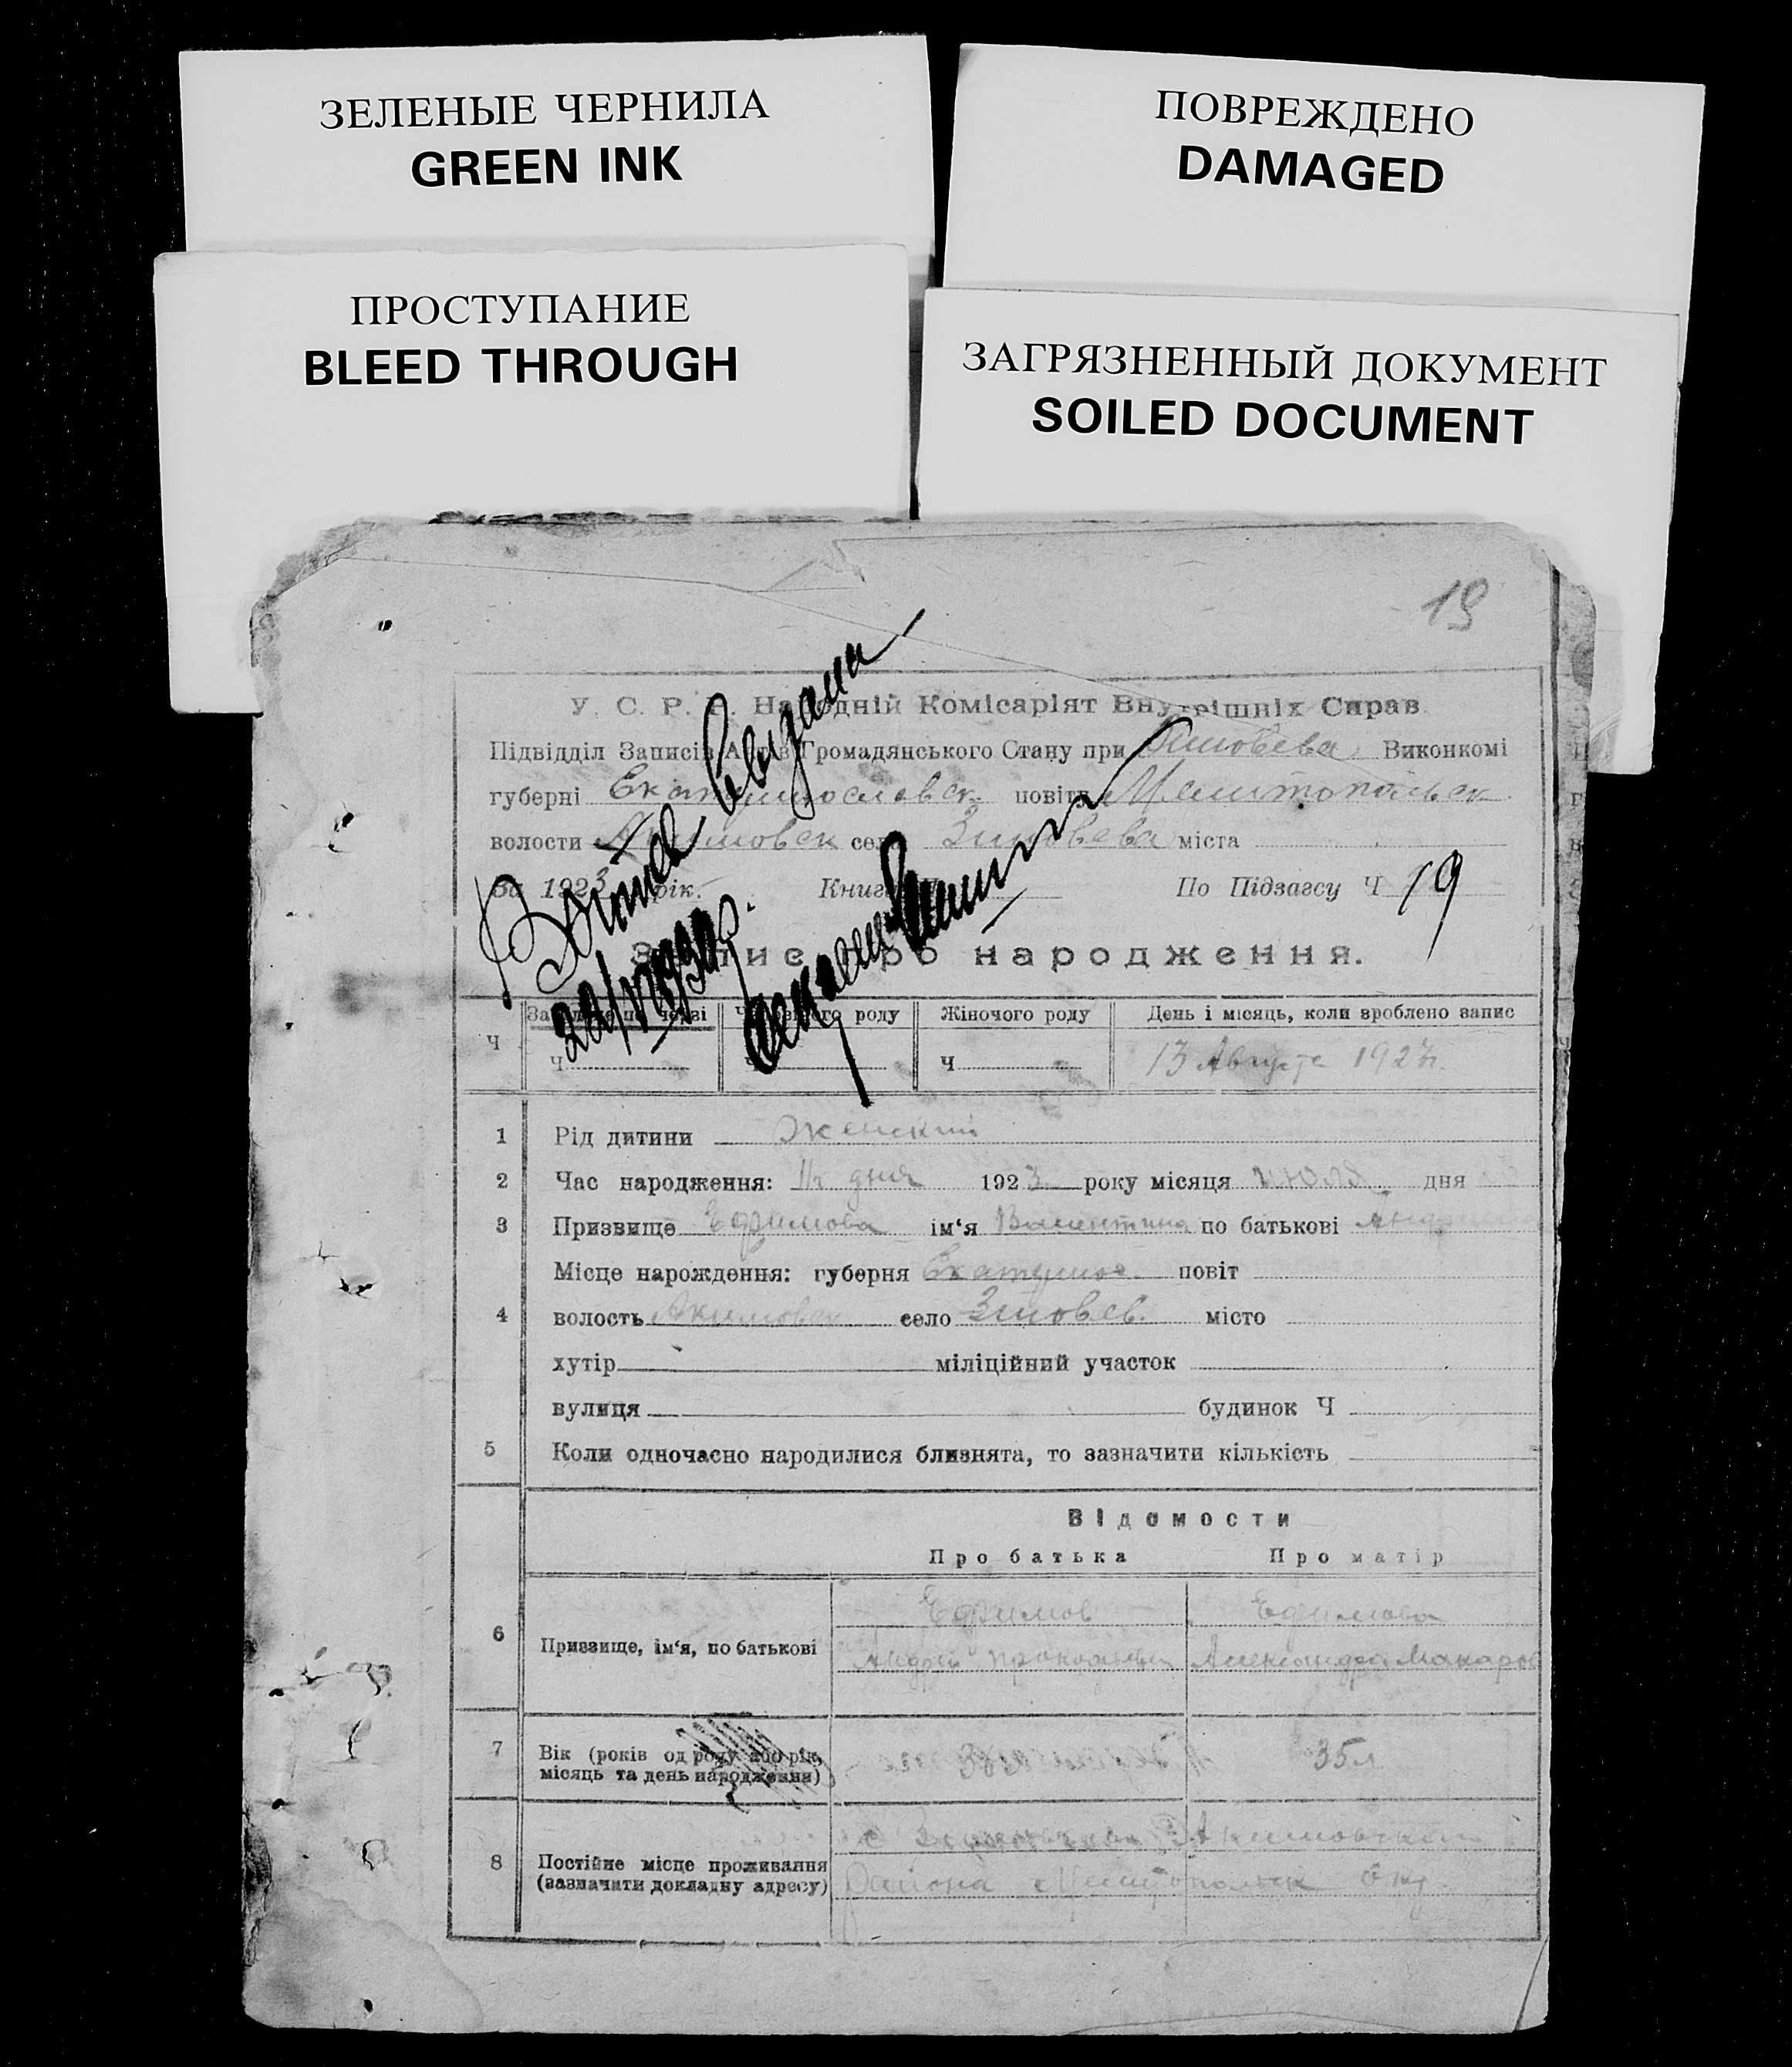 ЗЕЛЕНЫЕ ЧЕРНИЛА
GREEN INK
ПОВРЕЖДЕНО
DAMAGED
ПРОСТУПАНИЕ
BLEED THROUGH
ЗАГРЯЗНЕННЫЙ ДОКУМЕНТ
SOILED DOCUMENT
19
У. С. Р. Р. Народній Комісаріят Внутрішніх Справ
Підвідділ Записів Актів Громадянського Стану при Виконкомі
губерні Екатеринославск. повіту Мелитопольск
волости Акимовск села Зиновьева міста
За 1923 рік. Книга По Підзагсу Ч 19
Запис про народження.
Ч
Ч роду Жіночого роду День і місяць, коли зроблено запис
Ч Ч Ч 13 Августа 1923г.
1 Рід дитини Женский
2 Час народження: дня 1923 року місяця июля дня
3 Призвище Ефимова ім‘я Валентина по батькові
Місце народження: губерня Екатерин. повіт
4 волость Акимовск село Зиновьев. місто
хутір міліційний участок
вулиця будинок Ч
5 Коли одночасно народилися близнята, то зазначити кількість
Відомости
Про батька Про матір
Ефимов Ефимова
6 Призвище, ім‘я, по батькові
Андрей Прокофьевич Александра Макаров
7 Вік (років од роду або рік, місяць та день народження) 35л
8 Постійне місце проживання (зазначити докладну адресу)
Акимовского
Района Мелитопольск окр.